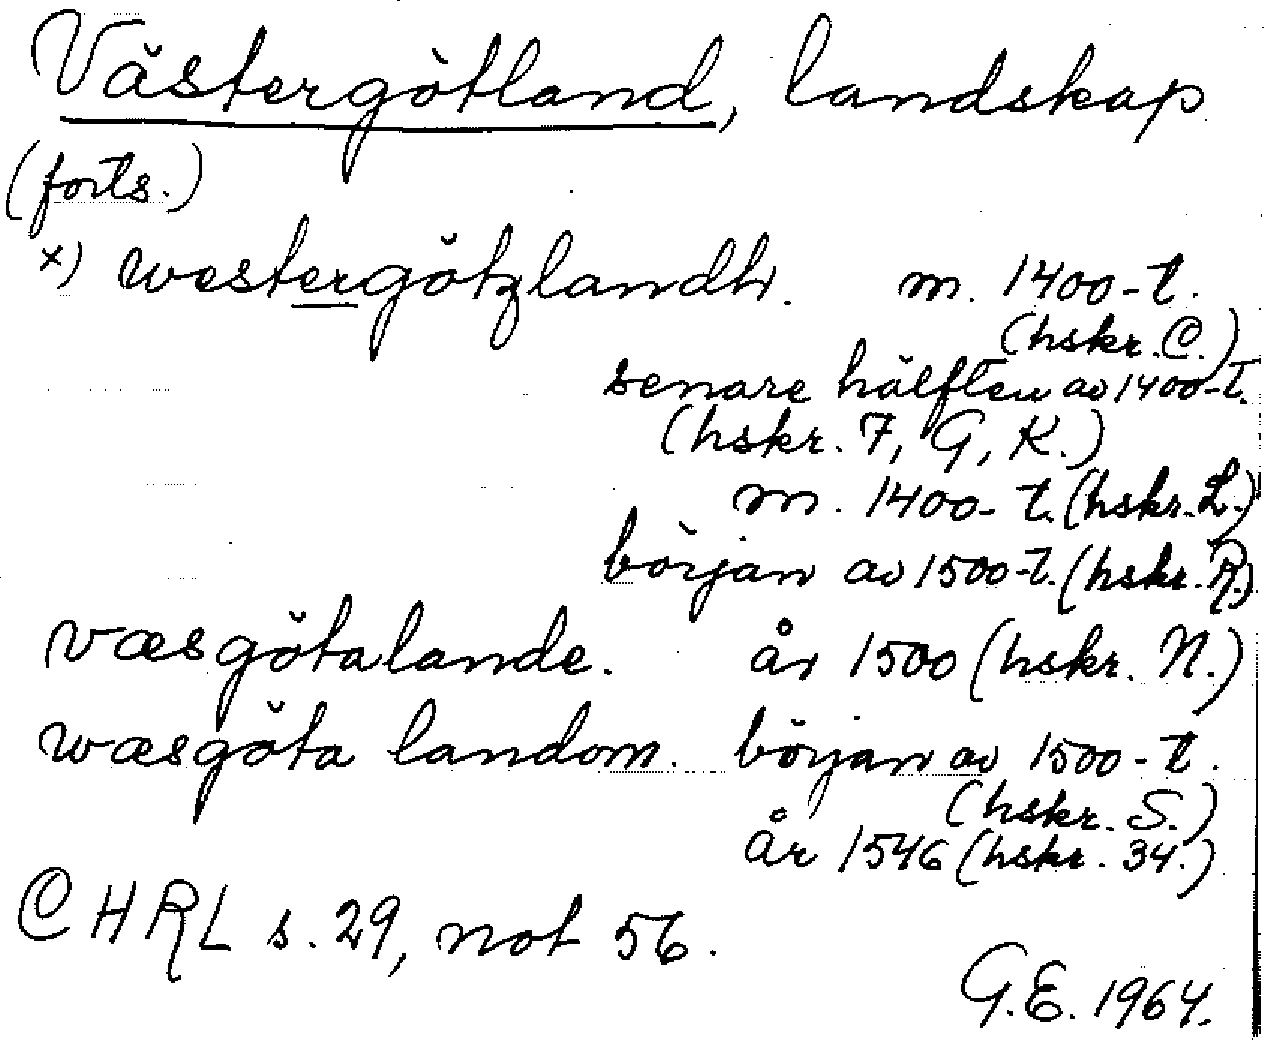 Västergötland, landskap
(forts.)
x) westergötzlandh. m. 1400-t.
(hskr. C.)
senare hälften av 1400-t.
(hskr. F, G, K.)
m. 1400-t. (hskr. L.)
början av 1500-t. (hskr. R.)
væsgötalande. år 1500 (hskr. N.)
wæsgöta landom. början av 1500-t.
(hskr. S.)
år 1546 (hskr. 34.)
CHRL s. 29, not 56.
G.E. 1964.